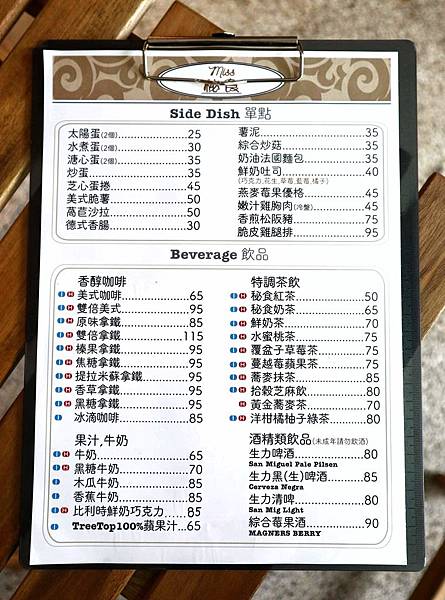 Miss
Side Dish 單點
太陽蛋(2個)........25
水煮蛋(2個)........30
溏心蛋(2個)........35
炒蛋........35
芝心蛋捲........45
美式脆薯........50
萵苣沙拉........50
德式香腸........30
薯泥........35
綜合炒菇........35
奶油法國麵包........35
鮮奶吐司........40
(巧克力,花生,草莓,藍莓,橘子)
燕麥莓果優格........45
嫩汁雞胸肉(冷盤)........45
香煎松阪豬........75
脆皮雞腿排........95
Beverage 飲品
香醇咖啡
I H 美式咖啡........65
I H 雙倍美式........95
I H 原味拿鐵........85
I H 雙倍拿鐵........115
I H 榛果拿鐵........95
I H 焦糖拿鐵........95
I H 提拉米蘇拿鐵........95
I H 香草拿鐵........95
I H 黑糖拿鐵........95
I 冰滴咖啡........85
果汁,牛奶
I H 牛奶........65
I H 黑糖牛奶........70
I 木瓜牛奶........85
I 香蕉牛奶........85
I H 比利時鮮奶巧克力........85
I TreeTop100%蘋果汁...65
特調茶飲
I H 秘食紅茶........50
I H 秘食奶茶........65
I H 鮮奶茶........70
I H 水蜜桃茶........75
I H 覆盆子草莓茶........75
I H 蔓越莓蘋果茶........75
I H 蕎麥抹茶........85
I H 拾穀芝麻飲........80
H 黃金蕎麥茶........70
I H 洋柑橘柚子綠茶........80
酒精類飲品(未成年請勿飲酒)
生力啤酒........80
San Miguel Pale Pilsen
生力黑(生)啤酒........85
Cerveza Negra
生力清啤........80
San Mig Light
綜合莓果酒........90
MAGNERS BERRY